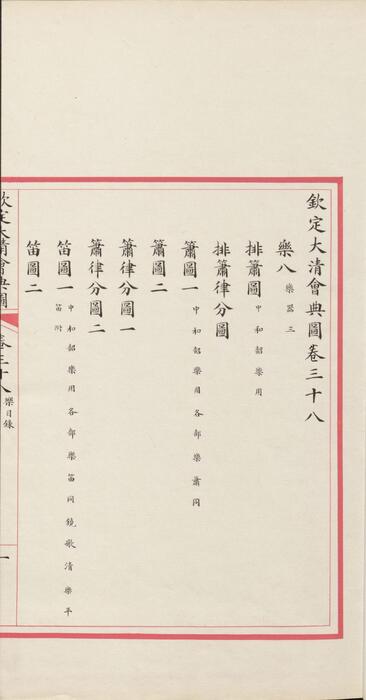 欽定大清會典圖卷三十八
樂八 樂器三
排簫圖 中和韶樂用
排簫律分圖
簫圖一 中和韶樂用各部樂簫同
簫圖二
簫律分圖一
簫律分圖二
笛圖一 中和韶樂用各部樂笛同鐃歌清樂平笛附
笛圖二
欽定大清會典圖 卷三十八 樂目錄 一